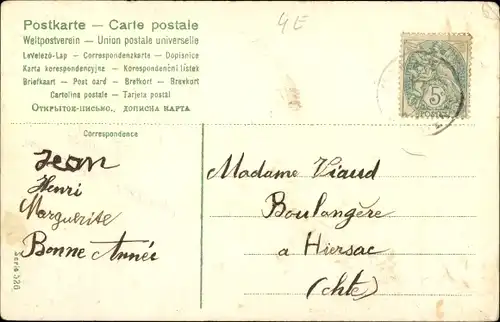 4E
Postkarte — Carte postale
Weltpostverein — Union postale universelle
Levelező-Lap — Correspondenzkarte — Dopisnice
Karta korespondencyjna — Korespondenční lístek
Briefkaart — Post card — Brefkort — Brevkort
Cartolina postale — Tarjeta postal
Открытое-письмо, дописна карта
5c
Correspondence
Jean
Henri
Marguerite
Bonne Année
Madame Viaud
Boulangère
a Hiersac
(chte)
Serie 526